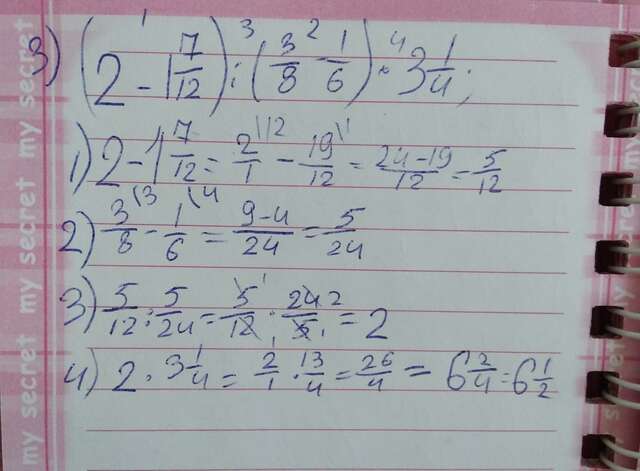 3) (2 - 1 7/12) : (3/8 - 1/6) · 3 1/4;
1 3 2 4
1) 2 - 1 7/12 = 2/1 \12 - 19/12 \1 = 24-19/12 = 5/12
2) 3/8 \3 - 1/6 \4 = 9-4/24 = 5/24
3) 5/12 : 5/24 = 5/12 · 24/5 = 2
1 2 1 1
4) 2 · 3 1/4 = 2/1 · 13/4 = 26/4 = 6 2/4 = 6 1/2
my secret my secret my secret
my secret my secret